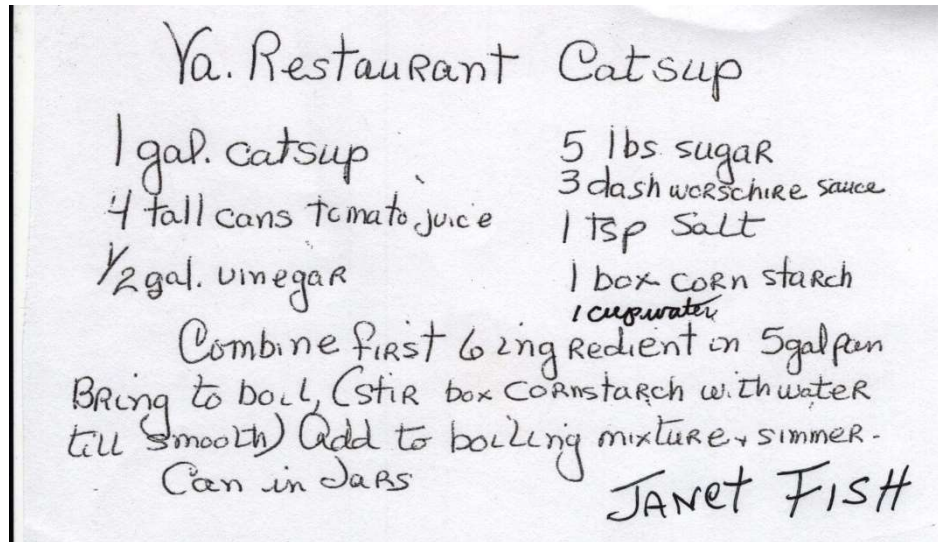 Va. Restaurant Catsup
1 gal. catsup
4 tall cans tomato juice
1/2 gal. vinegar
5 lbs. sugar
3 dash worschire sauce
1 tsp salt
1 box corn starch
1 cup water
Combine first 6 ingredient in 5 gal pan
Bring to boil, (stir box cornstarch with water
till smooth) add to boiling mixture + simmer.
Can in Jars
Janet Fish